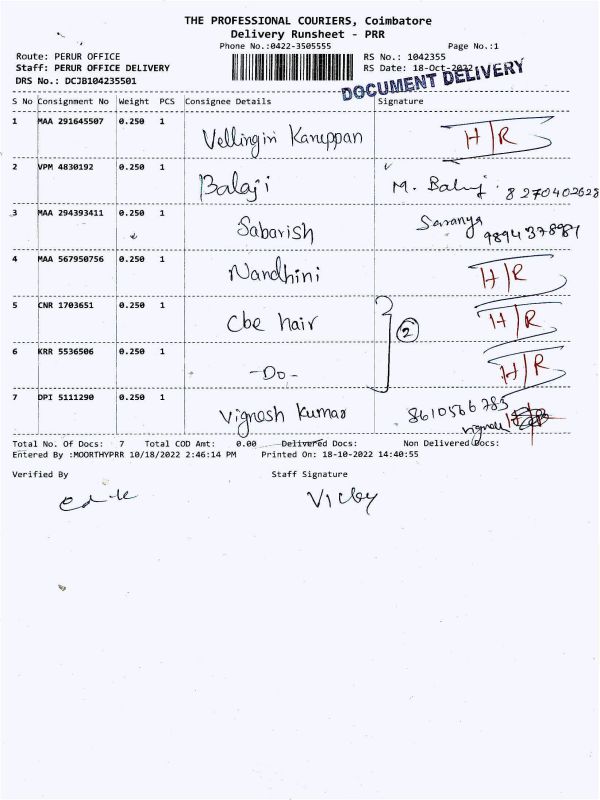 THE PROFESSIONAL COURIERS, Coimbatore
Delivery Runsheet - PRR
Phone No.:0422-3505555 Page No.:1
Route: PERUR OFFICE RS No.: 1042355
Staff: PERUR OFFICE DELIVERY RS Date: 18-Oct-2022
DRS No.: DCJB104235501
DOCUMENT DELIVERY
S No Consignment No Weight PCS Consignee Details Signature
1 MAA 291645507 0.250 1 Vellingiri Karuppan H/R
2 VPM 4830192 0.250 1 Balaji M. Balaji 8270402628
3 MAA 294393411 0.250 1 Sabarish Saranya 9894378987
4 MAA 567950756 0.250 1 Nandhini H/R
5 CNR 1703651 0.250 1 Cbe hair 2 H/R
6 KRR 5536506 0.250 1 -Do- H/R
7 DPI 5111290 0.250 1 Vignesh Kumar 8610566783
Total No. Of Docs: 7 Total COD Amt: 0.00 Delivered Docs: Non Delivered Docs:
Entered By :MOORTHYPRR 10/18/2022 2:46:14 PM Printed On: 18-10-2022 14:40:55
Verified By Staff Signature
Vicky